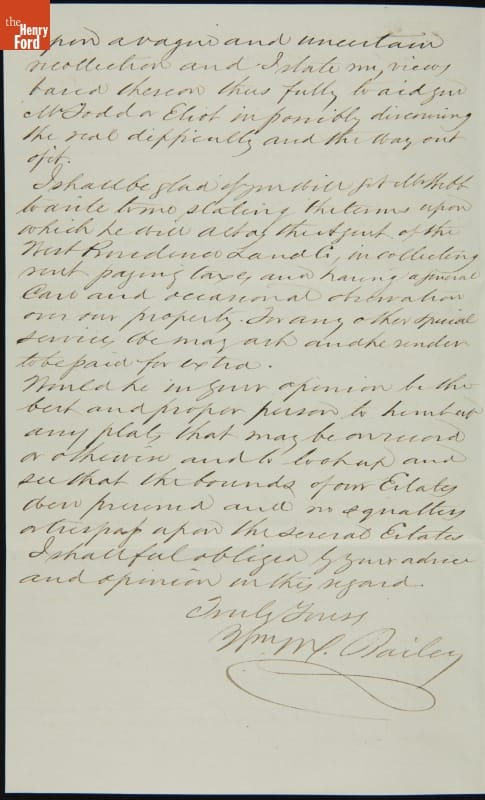 the
Henry
Ford
upon a vague and uncertain
recollection and I state my views
based thereon thus fully to aid you
Mr Todd or Eliot in possibly discovering
the real difficulty and the way out
of it.
I shall be glad if you will get Mr
to write to me stating the terms upon
which he will act as the Agent of the
West Providence Land Co, in collecting
rent paying taxes and having a general
Care and occasional observation
over our property. For any other special
services we may ask and he render
to be paid for extra.
Would he in your opinion be the
best and proper person to hunt out
any plats that may be on record
or otherwise and to look up and
see that the bounds of our Estates
are preserved and no squatters
or trespass upon the several Estates
I shall feel obliged by your advice
and opinion in this regard.
Truly Yours
Wm M. Bailey